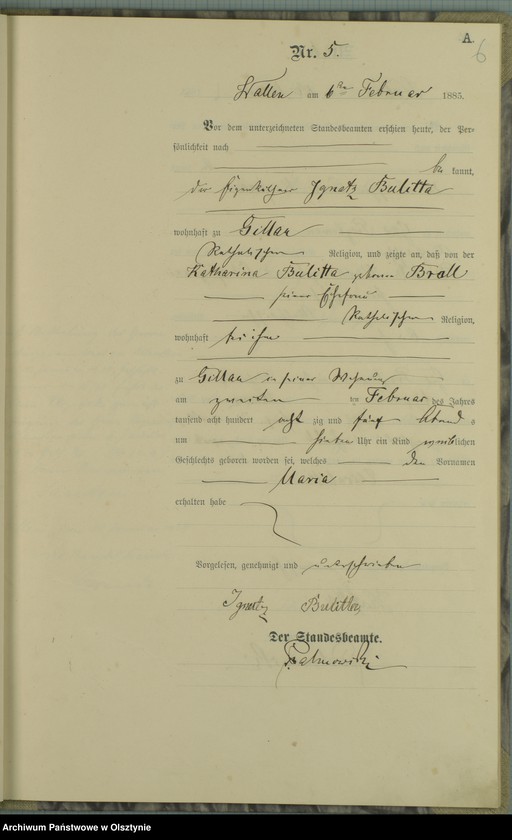 A.
6
Nr. 5.
Wallen am 6ten Februar 1885.
Vor dem unterzeichneten Standesbeamten erschien heute, der Per-
sönlichkeit nach
be kannt,
der Eigenkäthner Ignatz Bulitta
wohnhaft zu Gillau
Katholischer Religion, und zeigte an, daß von der
Katharina Bulitta geborne Broll
seiner Ehefrau
Katholischer Religion,
wohnhaft bei ihm
zu Gillau in seiner Wohnung
am zweiten ten Februar des Jahres
tausend acht hundert acht zig und fünf Abend s
um sieben Uhr ein Kind weiblichen
Geschlechts geboren worden sei, welches den Vornamen
Maria
erhalten habe
Vorgelesen, genehmigt und unterschrieben
Ignatz Bulitta
Der Standesbeamte.
Archiwum Państwowe w Olsztynie